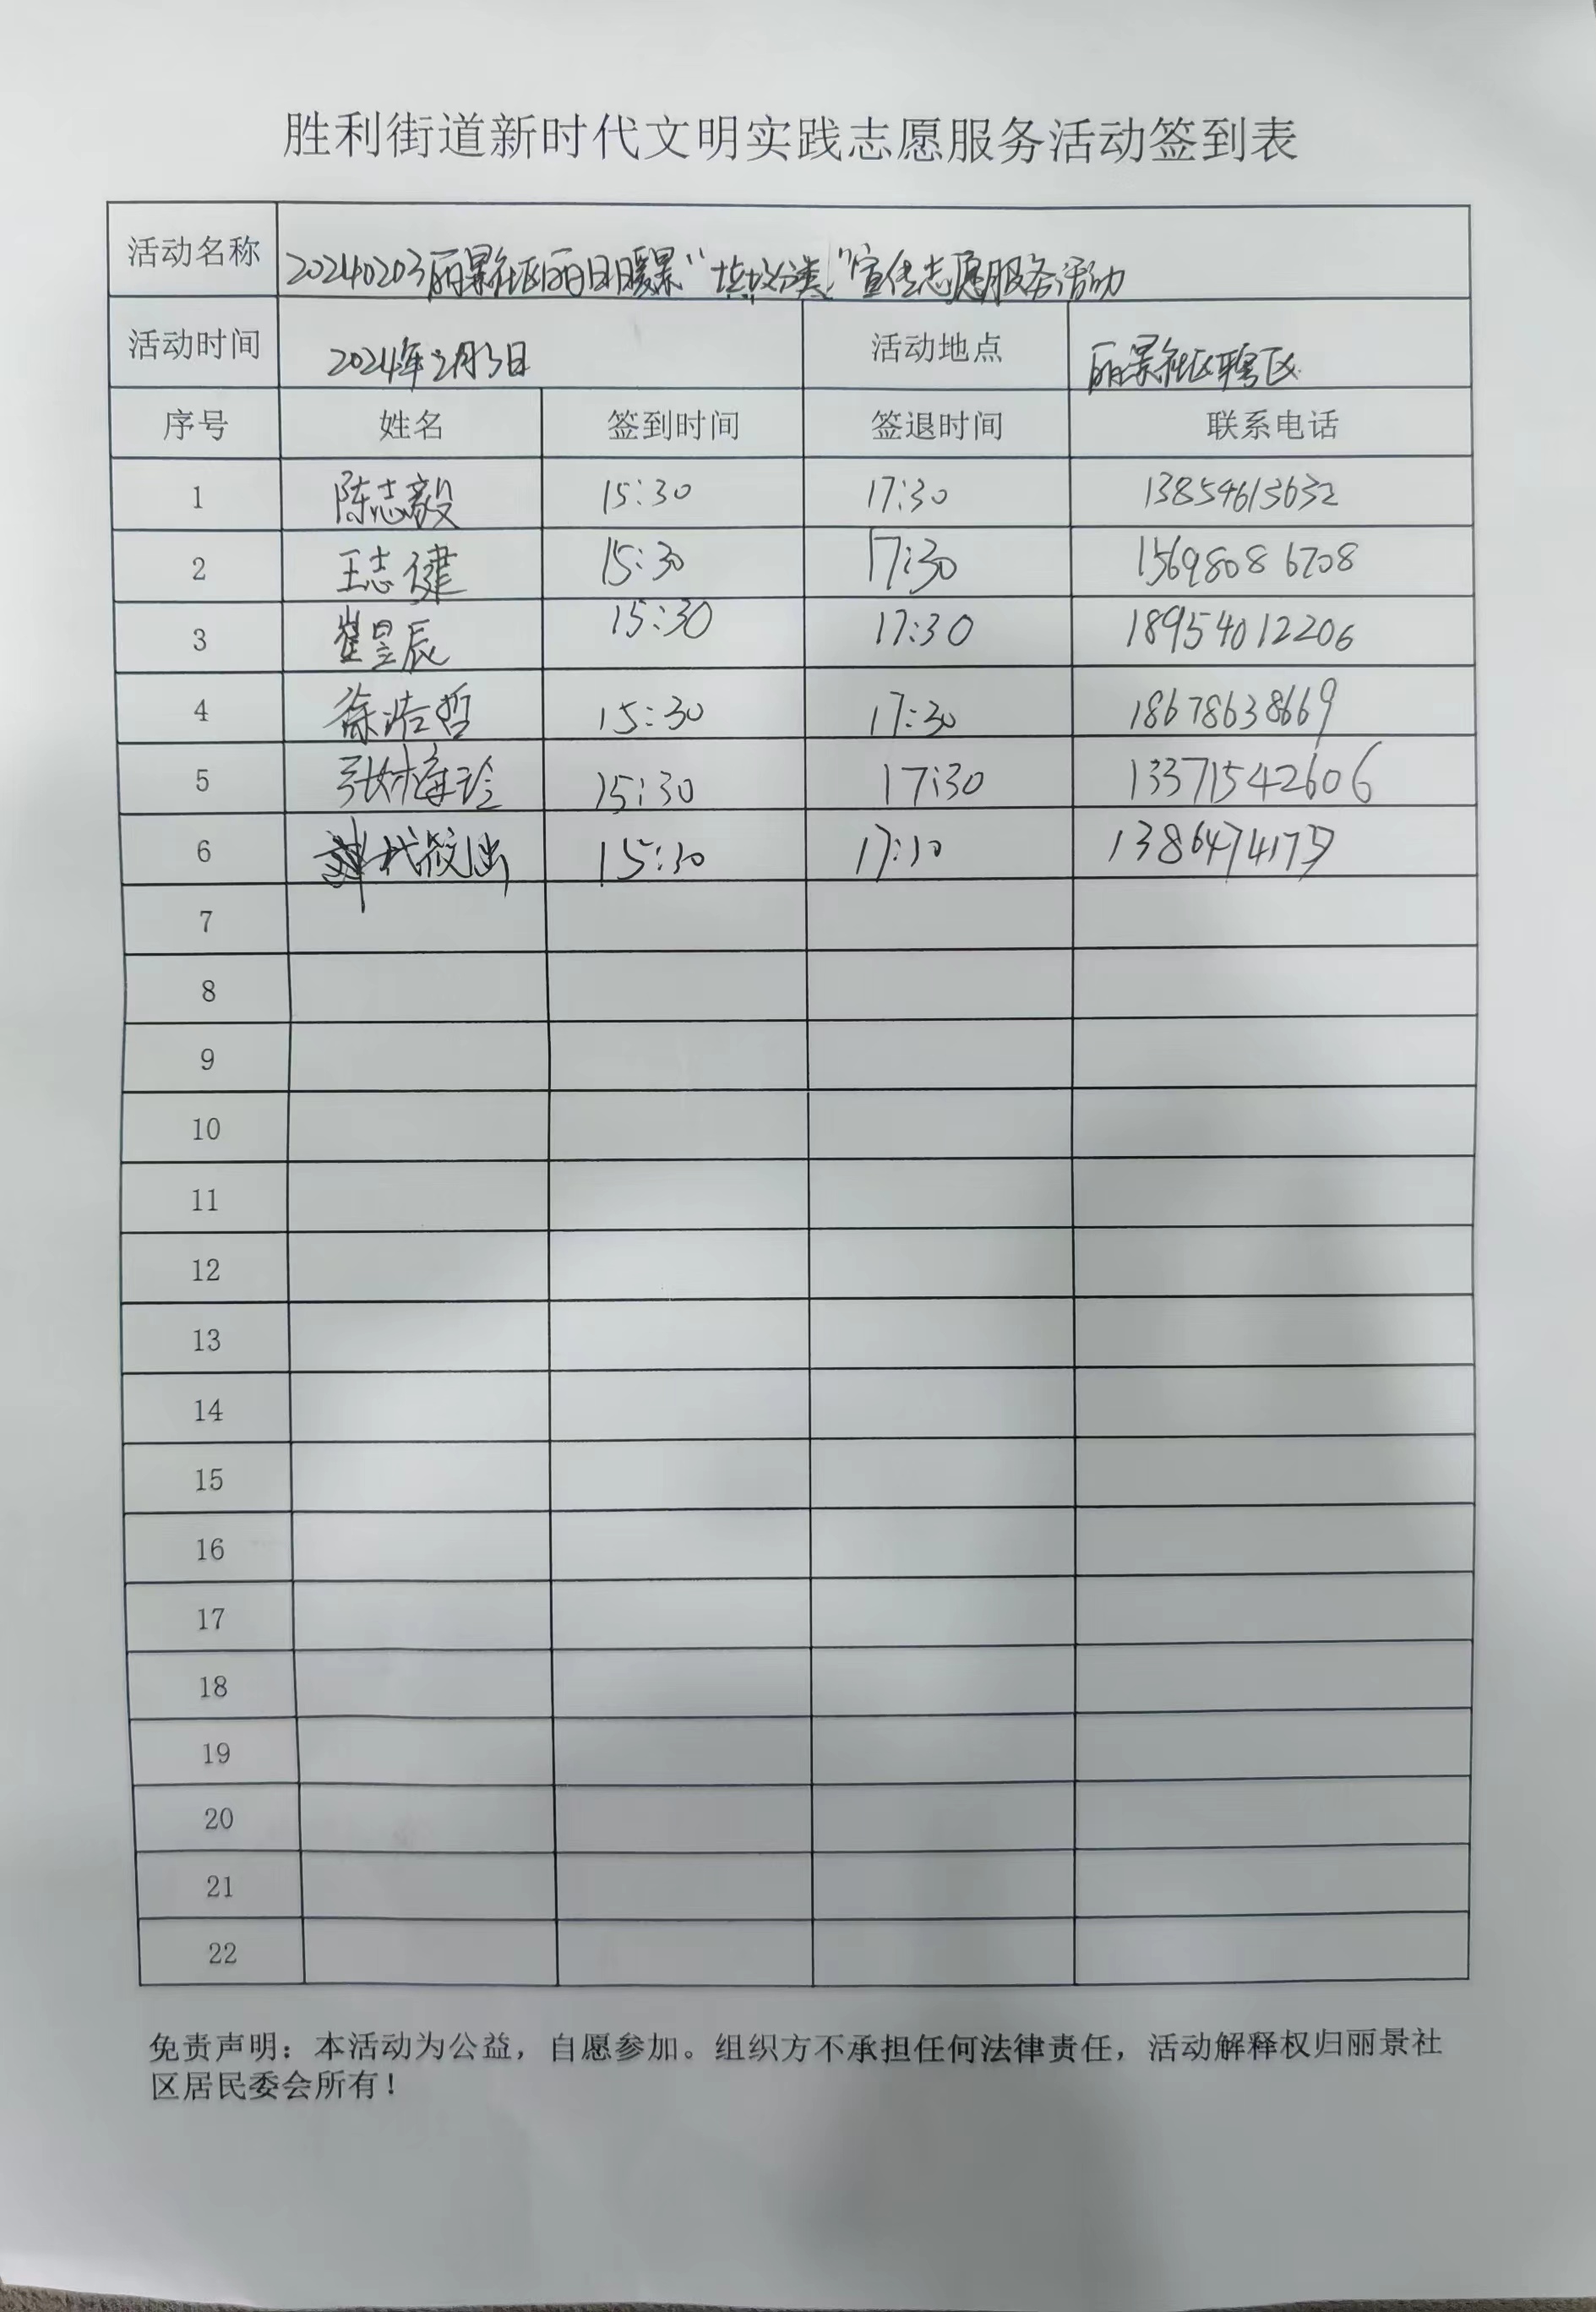 胜利街道新时代文明实践志愿服务活动签到表
活动名称 20240203丽景社区丽日暖景“垃圾分类”宣传志愿服务活动
活动时间 2024年2月3日 活动地点 丽景社区辖区
序号 姓名 签到时间 签退时间 联系电话
1 陈志毅 15:30 17:30 13854613632
2 王志健 15:30 17:30 15698086708
3 崔昱辰 15:30 17:30 18954012206
4 徐浩哲 15:30 17:30 18678638669
5 张梅玲 15:30 17:30 13371542606
6 15:30 17:30
7
8
9
10
11
12
13
14
15
16
17
18
19
20
21
22
免责声明：本活动为公益，自愿参加。组织方不承担任何法律责任，活动解释权归丽景社
区居民委会所有！